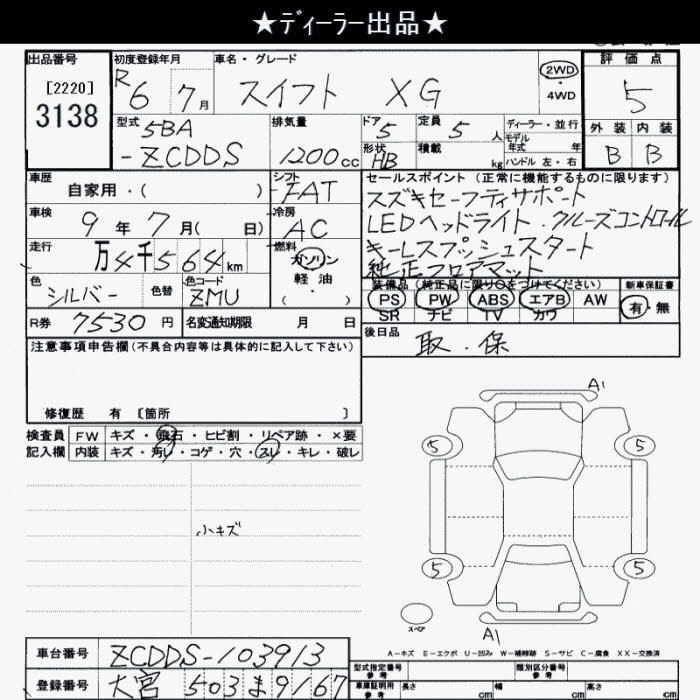 ★ディーラー出品★
出品番号 初度登録年月 車名・グレード 評価点
[2220] R6 7月 スイフト XG 2WD・4WD 5
3138
型式 5BA 排気量 ドア 5 定員 5人 ディーラー・並行 外装 内装
-ZCDDS 1200cc 形状 HB 積載 kg モデル年式 年 ハンドル 左・右 B B
車歴 自家用・( ) シフト FAT セールスポイント(正常に機能するものに限ります)
車検 9年7月( 日) 冷房 AC スズキセーフティサポート
LEDヘッドライト.クルーズコントロール
走行 万4千564km 燃料 ガソリン キーレスプッシュスタート
軽油( ) 純正フロアマット
色 シルバー 色替 色コード ZMU 装備品(純正品に限り○をつけてください) 新車保証書
PS PW ABS エアB AW 有・無
SR ナビ TV カワ
R券 7530円 名変通知期限 月 日 後日品 取.保
注意事項申告欄(不具合内容等は具体的に記入して下さい)
修復歴 有 [箇所 ]
検査員 FW キズ・飛石・ヒビ割・リペア跡・×要
記入欄 内装 キズ・汚レ・コゲ・穴・スレ・キレ・破レ
小キズ
A1
5 5
5 5
スペア
A1
A-キズ E-エクボ U-凹み W-補修跡 S-サビ C-腐食 XX-交換済
車台番号 ZCDDS-103913 型式指定番号 参考 類別区分番号 参考
登録番号 大宮 503 ま 9167 車庫証明用 参考 長さ cm 幅 cm 高さ cm